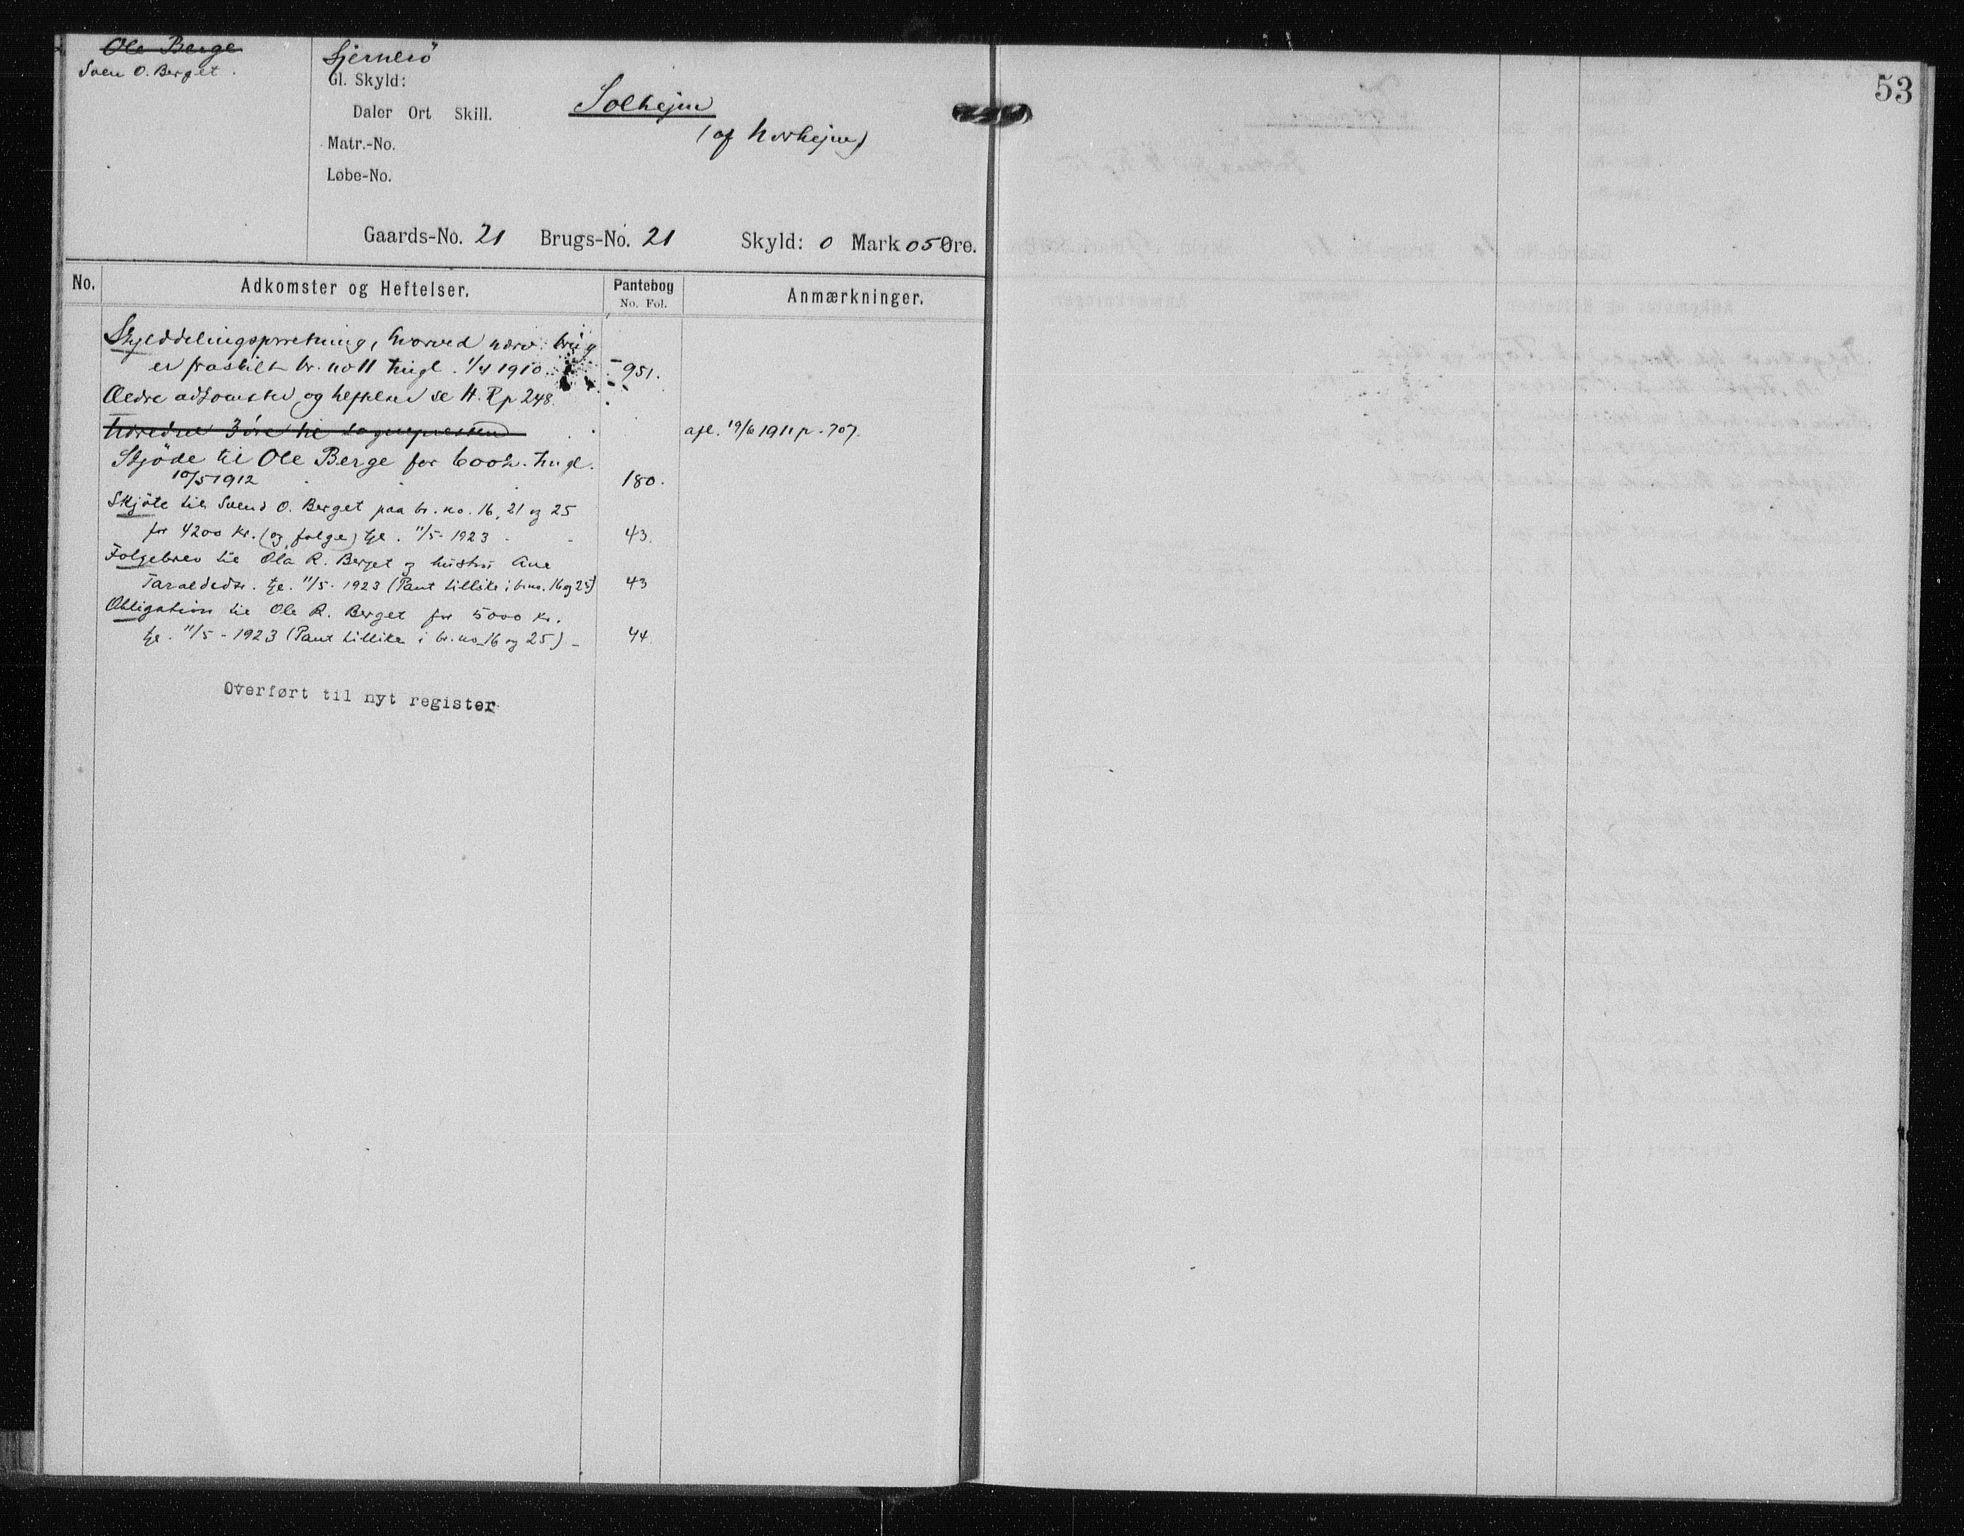 Ole Berge
Sven O. Berget.
Gjernesö
Gl. Skyld:
Daler Ort Skill.
Matr.-No.
Løbe-No.
Solhejm
(af Norhejm)
Gaards-No. 21 Brugs-No. 21 Skyld: 0 Mark 05 Øre.
53
No. Adkomster og Heftelser. Pantebog No. Fol. Anmærkninger.
Skylddelingsforretning, hvorved nærv. brug
er fraskilt br. no 11 tingl. 1/4 1910. 951.
Ældre adkomster og heftelser se H. R p 248.
Udreder 3 øre til sognepresten afl. 19/6 1911 p. 707.
Skjöde til Ole Berge for 600 k. tingl.
10/5 1912 180.
Skjöte til Svend O. Berget paa br. no. 16, 21 og 25
for 4200 kr. (og folge) tgl. 11/5-1923 43.
Folgebrev til Ola R. Berget og hustru Ane
Taraldsdtr. tgl. 11/5-1923 (Pant tillike i br.no. 16 og 25) 43
Obligation til Ole R. Berget for 5000 kr.
tgl. 11/5-1923 (Pant tillike i br. no 16 og 25) - 44.
Overført til nyt register